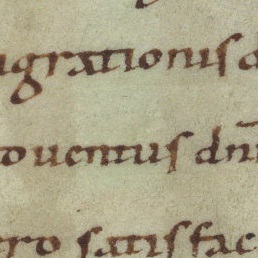 igrationis
duentus dn̄i
ro satisfac